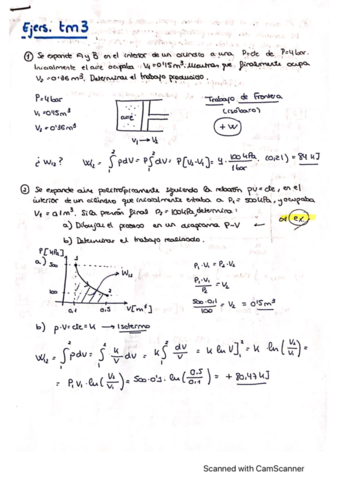 Ejers. tm3
① Se expande A y B en el interior de un cilindro a una P=cte de P=4bar.
Inicialmente el aire ocupaba V₁=0'15m³. Mientras que finalmente ocupa
V₂=0'36m³. Determinar el trabajo producido.
P=4bar
V₁=0'15m³
V₂=0'36m³
aire
V₁→V₂
Trabajo de Frontera
(isobaro)
+W
¿W₁₂? W₁₂=∫₁²pdV=P∫₁²dV=P[V₂-V₁]=4·100kPa/1bar·(0,21)=84kJ
② Se expande aire politrópicamente siguiendo la relación pv=cte, en el
interior de un cilindro que inicialmente estaba a P₁=500kPa, y ocupaba
V₁=0.1m³. Si la presión final P₂=100kPa, determina:
a) Dibujar el proceso en un diagrama P-V
b) Determinar el trabajo realizado.
ex
P[kPa]
a)
500
1
W₁₂
100
2
0,1 0,5 V[m³]
P₁·V₁=P₂·V₂
P₁·V₁/P₂=V₂
500·0.1/100=V₂=0'5m³
b) p·V=cte=K → Isotermo
W₁₂=∫₁²pdV=∫₁²K/V dV=K∫₁²dV/V=K ln V]₁²=K ln(V₂/V₁)=
=P₁V₁·ln(V₂/V₁)=500·0'1·ln(0.5/0.1)=+80.47kJ
Scanned with CamScanner